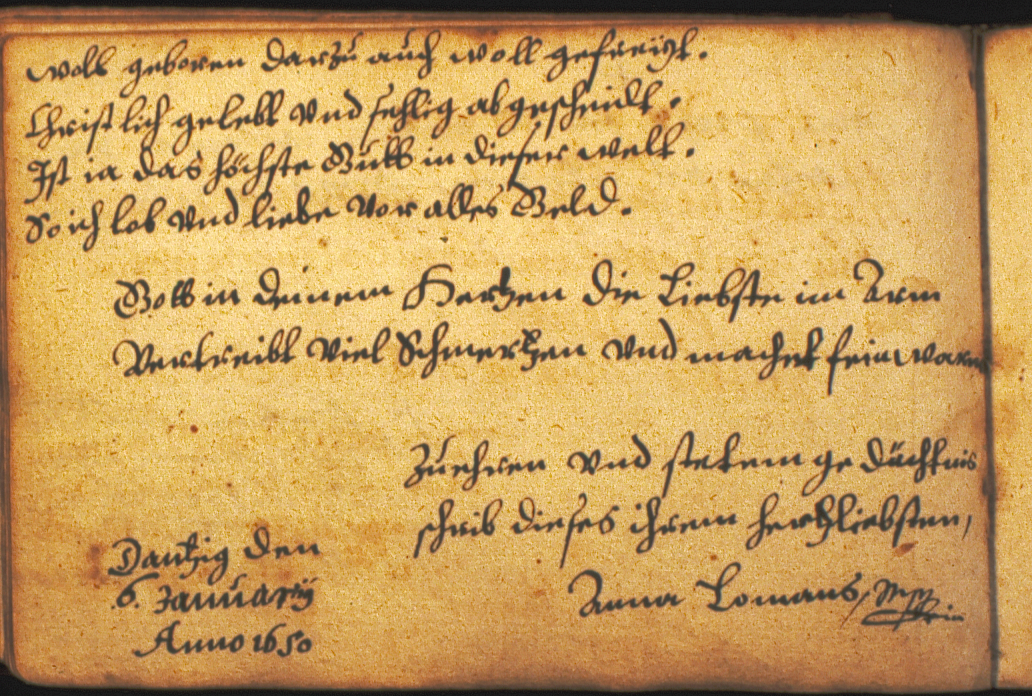 Woll geboren darzu auch woll gefreÿt.
Christlich gelebt Vnd sehlig abgescheidt.
Ist ia das höchste Gutt in dieser welt.
So ich lob Vnd liebe Vor alles Geld.
Gott in deinem Hertzen die Liebste im Arm
Vertreibt Viel Schmertzen Vnd machet fein warm
Zu ehren Vnd stetem gedächtnis
schrib dieses ihrem hertzliebsten,
Anna Lomans,
Dantzig den
6. Januarij
Anno 1650